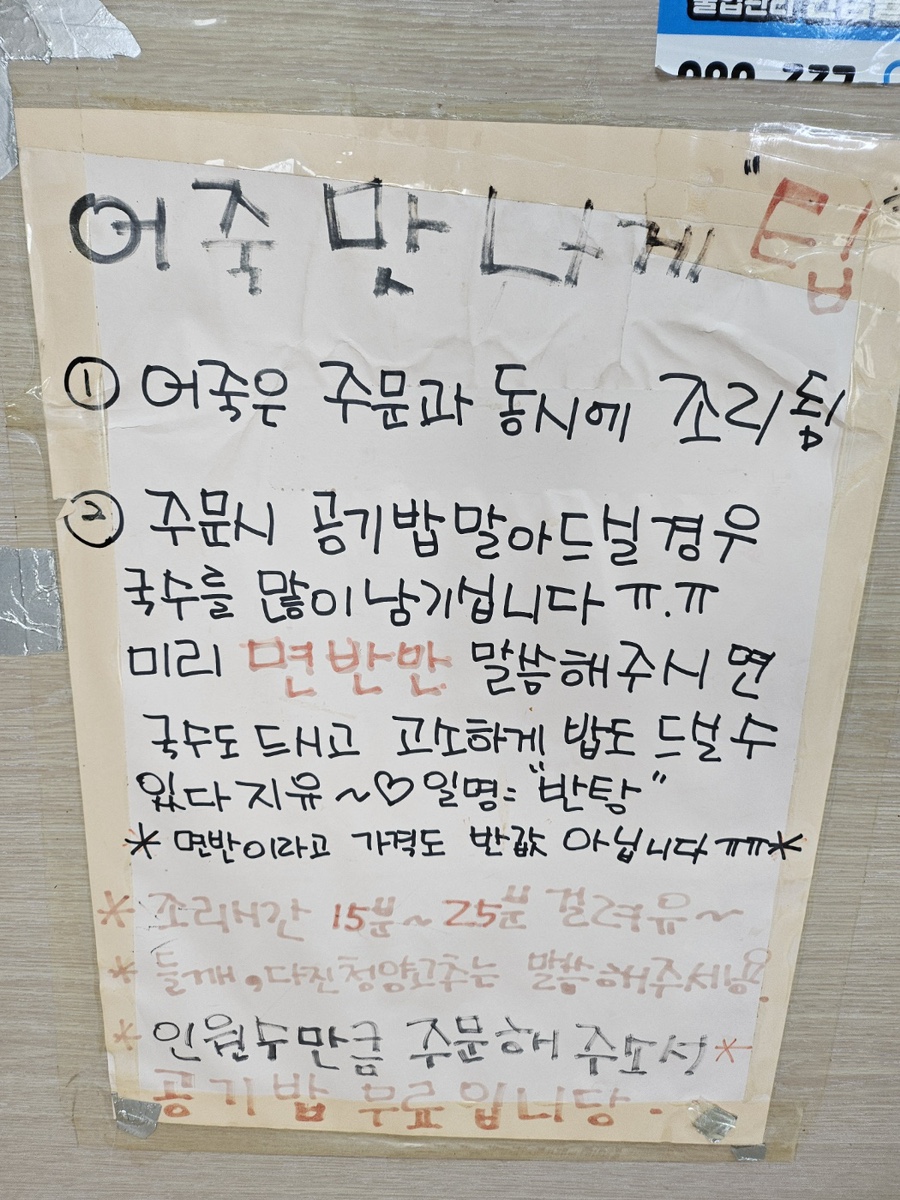 어죽 맛나게 "팁"
① 어죽은 주문과 동시에 조리됨
② 주문시 공기밥말아드실경우
국수를 많이남기십니다 ㅠ.ㅠ
미리 면반반 말씀해주시면
국수도 드시고 고소하게 밥도 드실수
있다지유~♡일명= "반탕"
*면반이라고 가격도 반값 아닙니다ㅠㅠ*
* 조리시간 15분~25분 걸려유~
* 들깨,다진청양고추는 말씀해주세용.
* 인원수만큼 주문해 주소서*
공기밥 무료입니당.